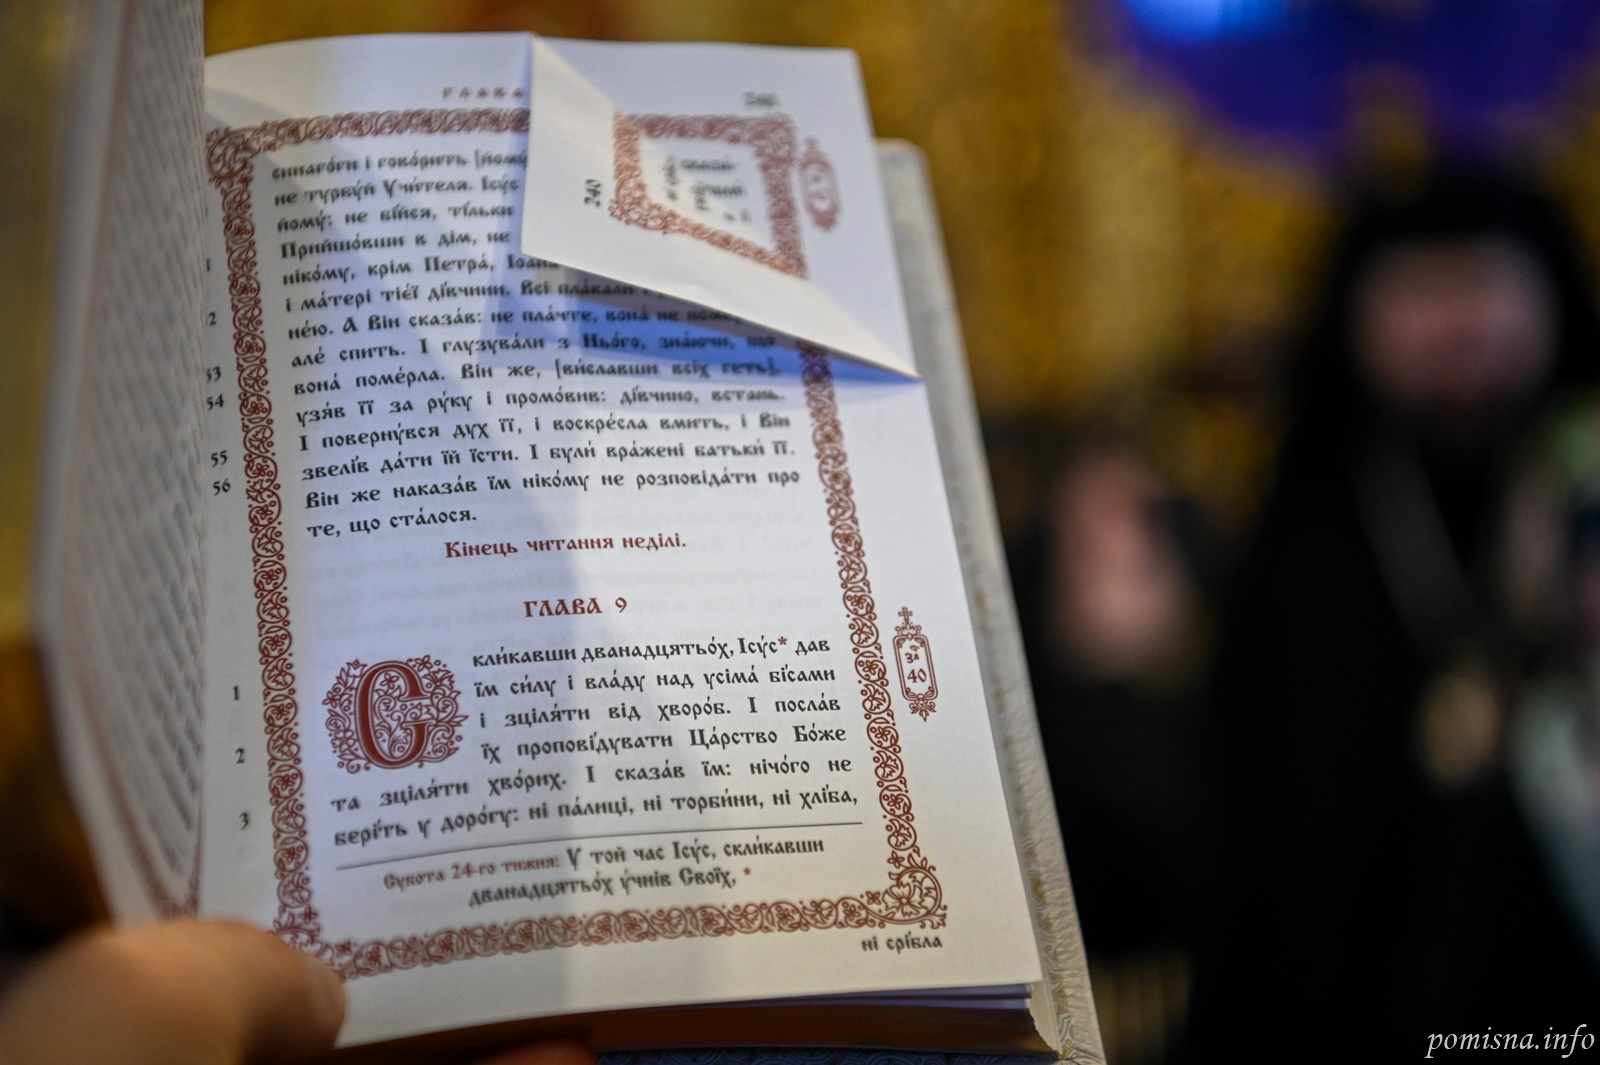 ГЛАВА
синагоги і гово́рить [йому
не турбу́й Учи́теля. Ісу́с
йому́: не бі́йся, ті́льки
Прийшо́вши в дім, не
ніко́му, крім Петра́, Іоана
і ма́тері тіє́ї ді́вчини. Всі пла́кали
не́ю. А Він сказа́в: не пла́чте, вона́ не
53 але́ спить. І глузува́ли з Ньо́го, зна́ючи, що
54 вона́ поме́рла. Він же, [ви́славши всіх геть],
узя́в її за ру́ку і промо́вив: ді́вчино, встань.
55 І поверну́вся дух її, і воскре́сла вмить, і Він
56 звелі́в да́ти їй ї́сти. І були́ вра́жені батьки́ її.
Він же наказа́в їм ніко́му не розповіда́ти про
те, що ста́лося.
Кінець читання неділі.
ГЛАВА 9
1 Скли́кавши дванадцятьо́х, Ісу́с* дав
їм си́лу і вла́ду над усіма́ бі́сами
2 і зціля́ти від хворо́б. І посла́в
їх пропові́дувати Ца́рство Бо́же
3 та зціля́ти хво́рих. І сказа́в їм: нічо́го не
бері́ть у доро́гу: ні па́лиці, ні торби́ни, ні хлі́ба,
40
Субота 24-го тижня: У той час Ісу́с, скли́кавши
дванадцятьо́х у́чнів Свої́х, *
ні срі́бла
240
pomisna.info